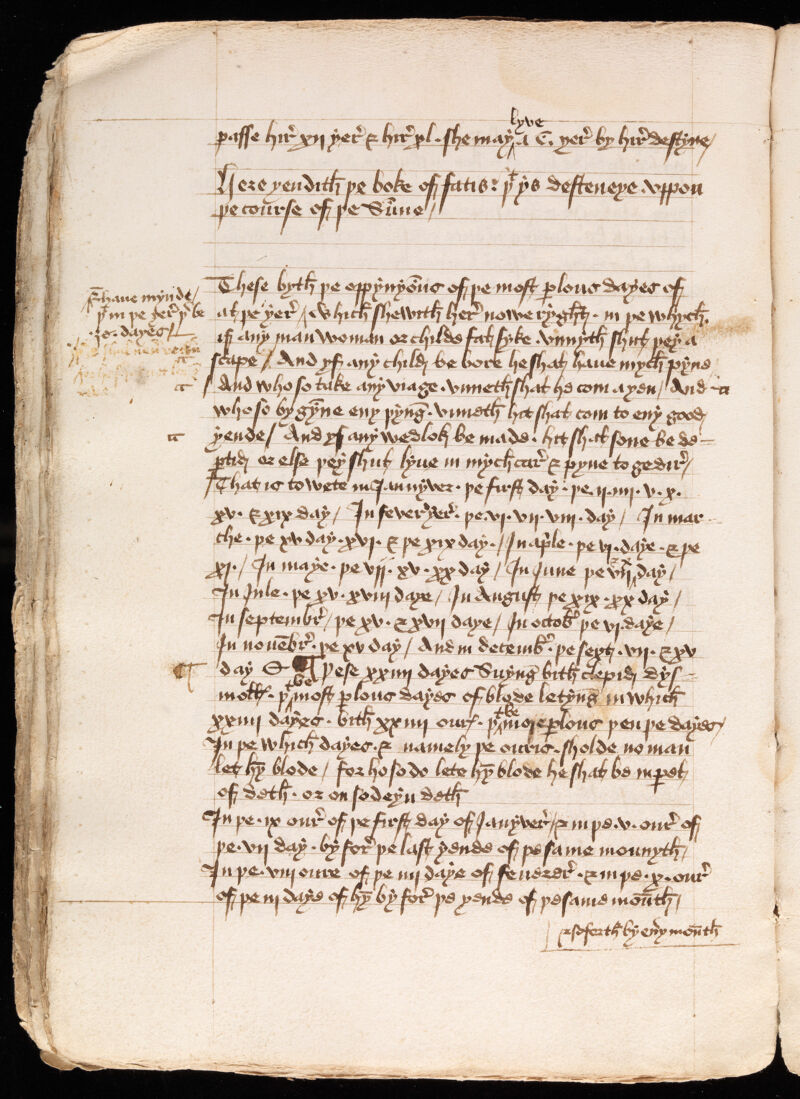 passe hir xii yer & hir xl. she may lyve a C. yer by hir destyne /
Here yendith þe boke of fatis: þt ys desteneye vppon
þe course of þe Sunne /
These byth þe oppynyons of þe most perlous dayes of
al þe yer / Which shewith her nowe ryght. in þe whych
if any man woman or childe fal syke vnnyth shul þey a
scape / And yf any child be bore he shal haue mych pyne
And who so take any viage. vnneth shal he com ayen / And
who so bygynne eny þyng. vnneth hit shal com to eny good
yende / And yf any wedlok be made. hit shal sone be de-
partid or else þey shul lyue in mych car & pyne to gedir /
That is to wete in Janyver. þe first day. þe .ii. iiii. v. x.
xv. & xix day / In feveryer. þe .vi. vii. viii. day / In mar-
che. þe xv day. xvi. & þe xix day. / In aprile. þe vi. daye. & þe
xi. / In maye. þe vij. xv. xx day / In June þe vii day /
In Jule. þe xv. xviii daye / In August þe xix. xx day /
In septembr / þe xv. & xvii daye / In octobr þe vi. daye /
In novebr. þe xv day / And in decembr. þe sept. vii. & xv
day
þese xxiiii dayes Suyng bith clepid dys-
moll. þt be most perlous dayes of blode letyng in which
xxiiii dayes. bith xxiiii our. þt be more perlous þen þe dayes /
In þe which dayes. & namely þe ouris. sholde no man
let hym blode / for ho so do lete hym blode he shal be in perel
of deth. or on sodeyn deth
In þe .ix our of þe first day of Janyver / & in þe .v. our of
þe .vii day. by for þe last yende of þe same mounyth /
In þe .viii oure of þe iiii daye of feuerer. & in þe .x. our
of þe iii daye of hym by for þe yende of þe same month /
& so forth by euery month
& haue mynde /
þt in þe yer þer be
for dayes